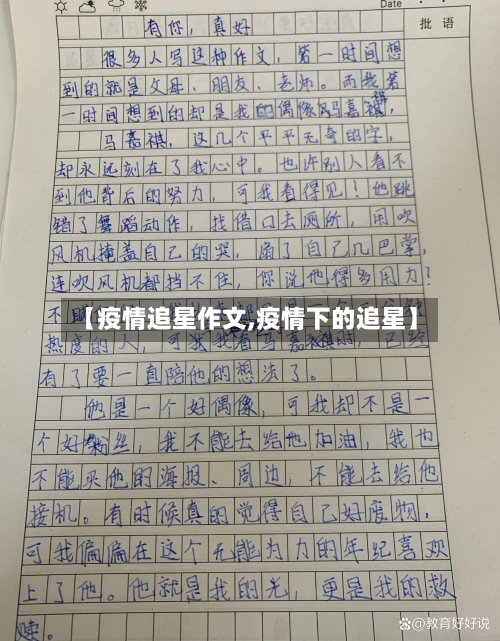 Date
批语
有你，真好
很多人写这种作文，第一时间想
到的就是父母、朋友、老师。而我第
一时间想到的却是我的偶像马嘉祺，
马嘉祺，这几个平平无奇的字，
却永远刻在了我心中。也许别人看不
到他背后的努力，可我看得见！他跳
错了舞蹈动作，找借口去厕所，用吹
风机掩盖自己的哭，扇了自己几巴掌，
连吹风机都挡不住，你说他得多用力？
【疫情追星作文,疫情下的追星】
热度的人，可我看马嘉祺时，已经
有了要一直陪他的想法了。
他是一个好偶像，可我却不是一
个好粉丝，我不能去给他加油，我也
不能买他的海报、周边，不能去给他
接机。有时候真的觉得自己好废物，
可我偏偏在这个无能为力的年纪喜欢
上了他。他就是我的光，更是我的救
赎。
@教育好好说